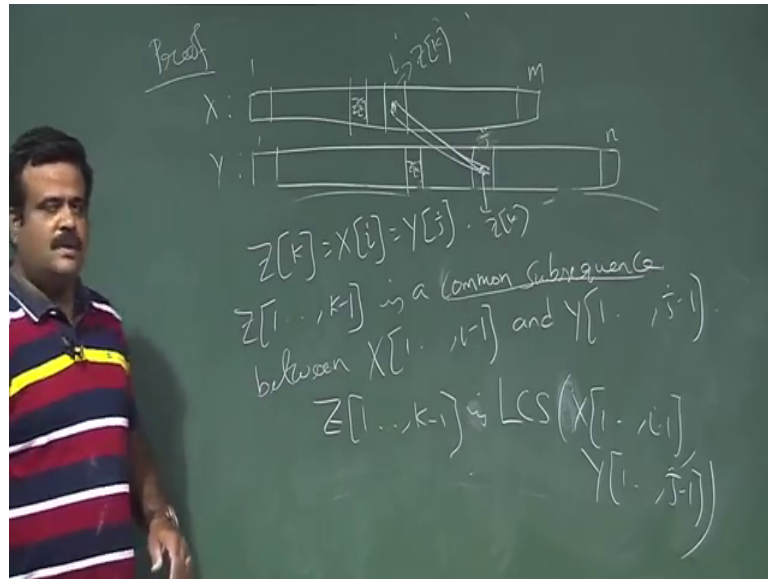 Proof
i → Z[k]
1 m
X:
j
1 n
Y:
Z[k] = X[i] = Y[j]. Z[k]
Z[1..,k-1] is a common subsequence
between X[1.. ,i-1] and Y[1.. ,j-1].
Z[1..,k-1] is LCS(X[1..,i-1]
Y[1..,j-1])